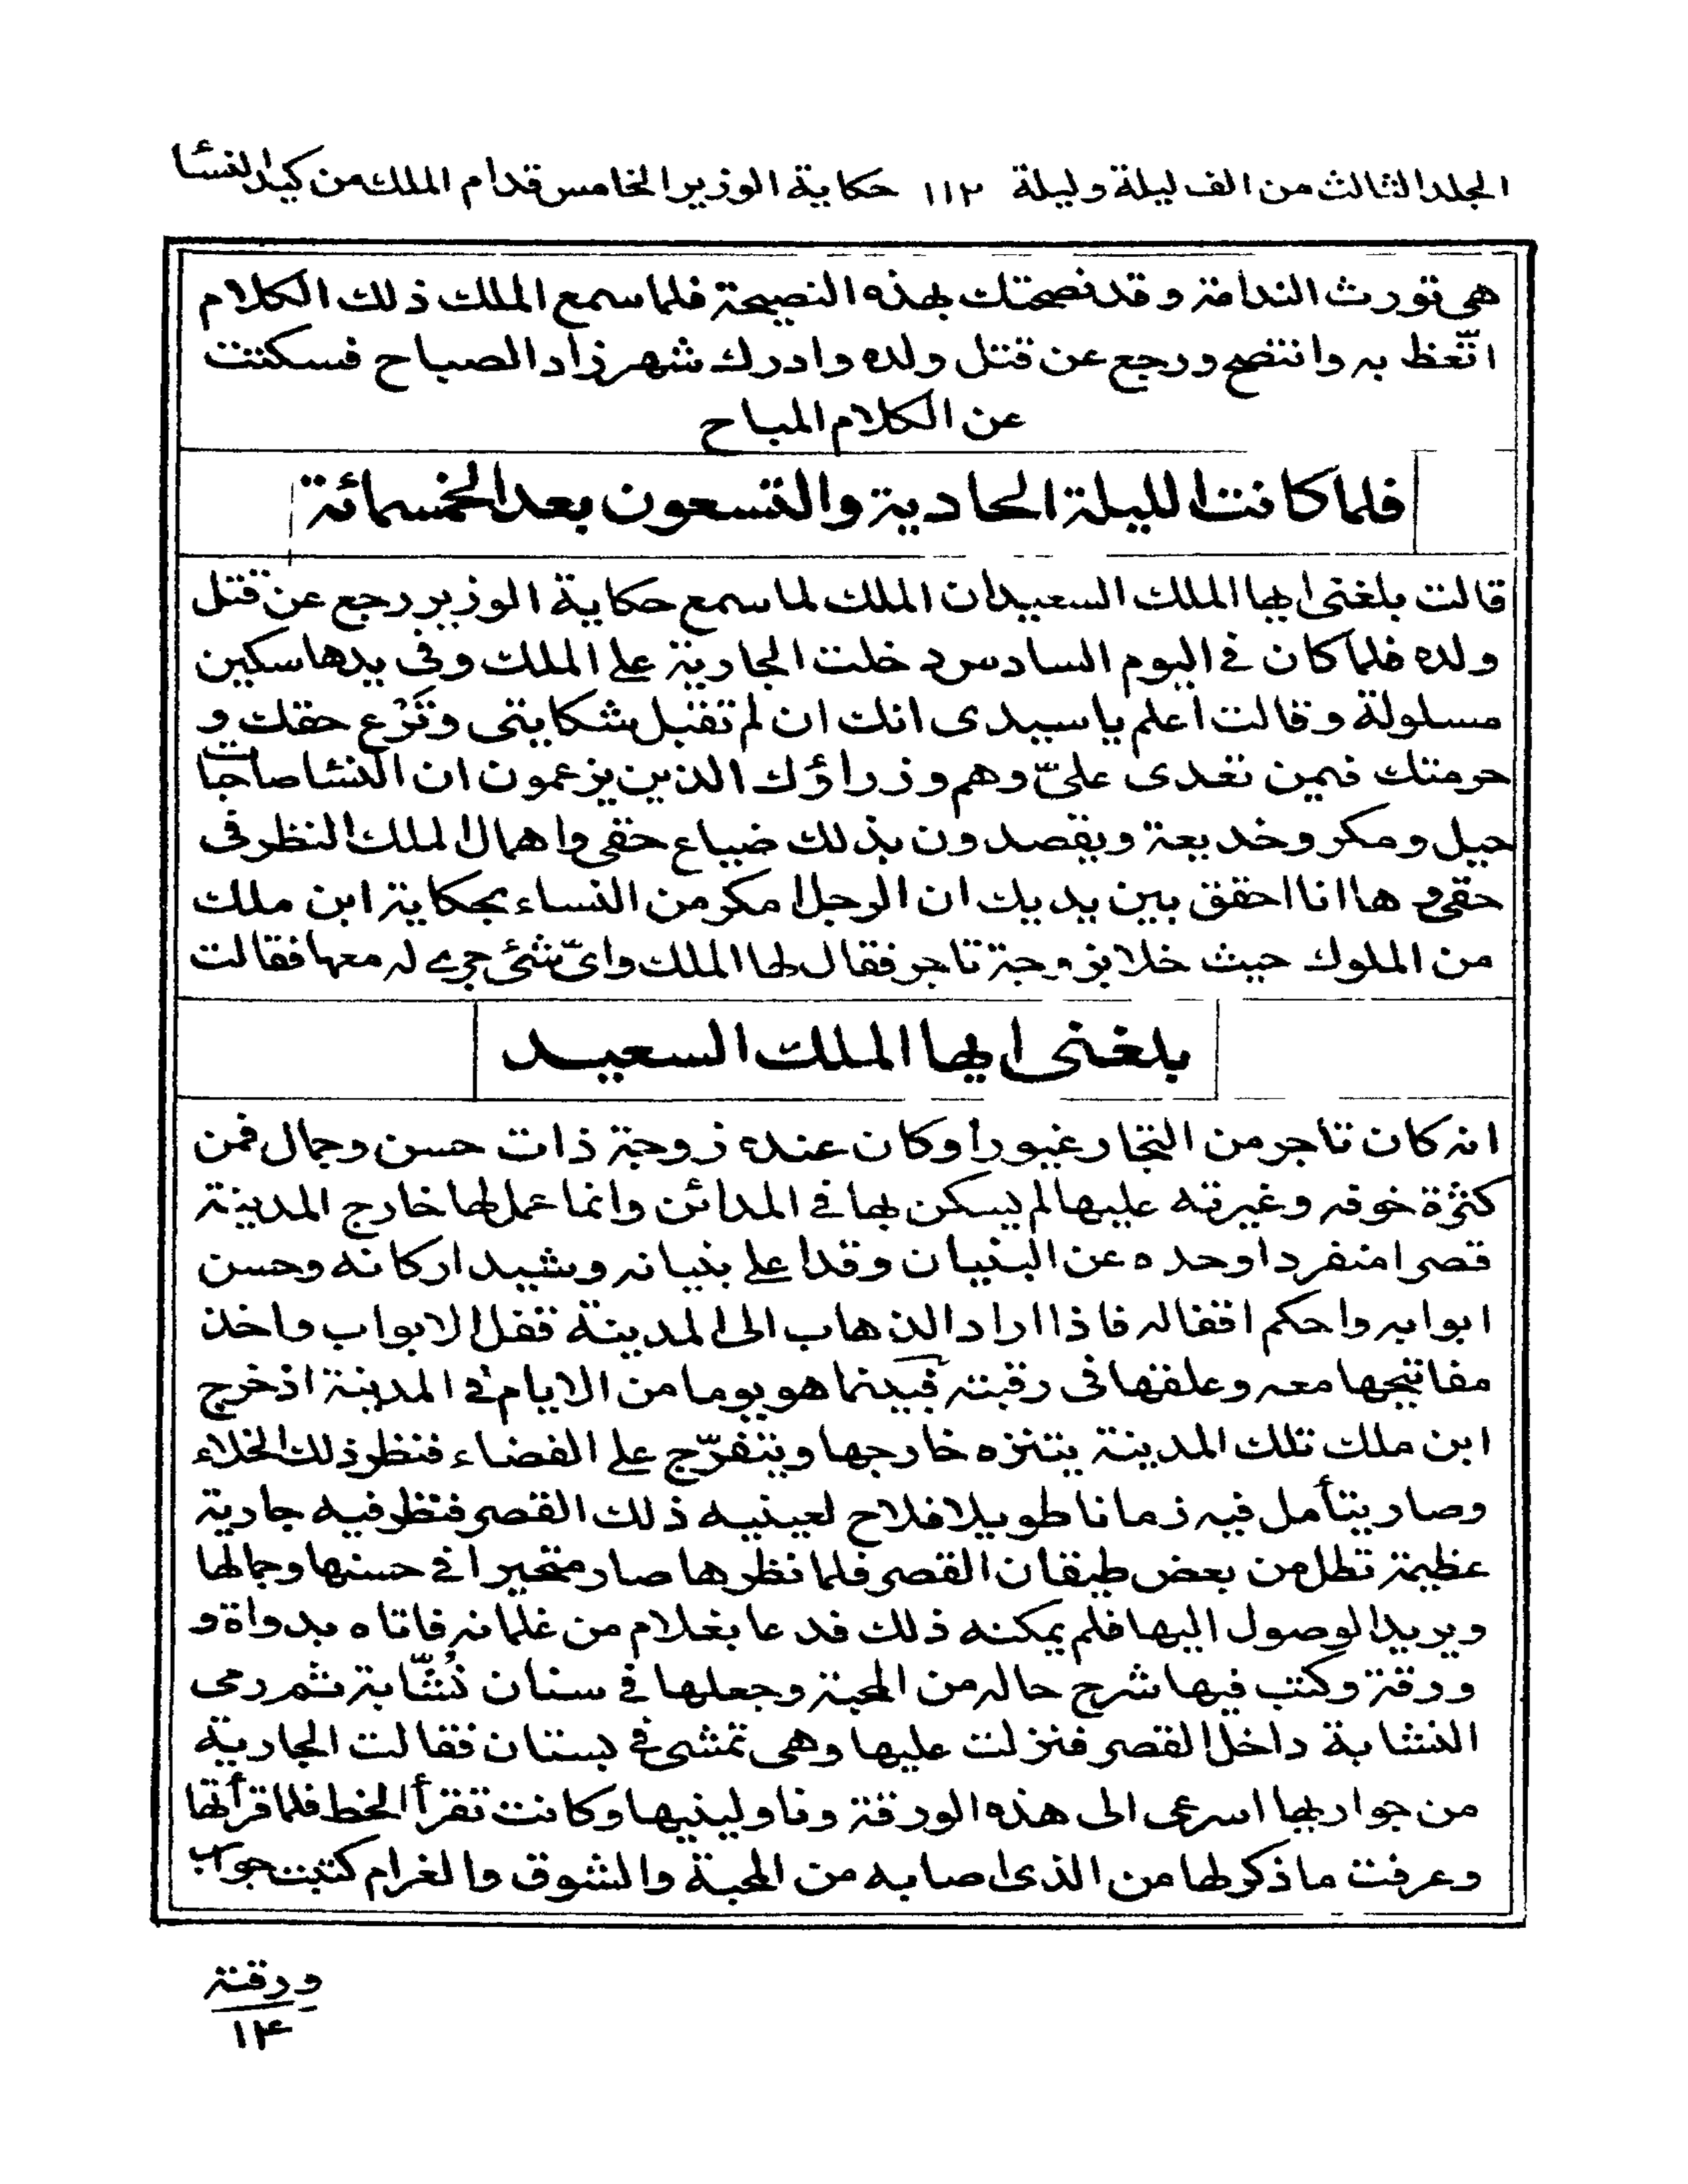 الجلد الثالث من الف ليلة وليلة ١١٢ حكاية الوزير الخامس قدام الملك من كيد النساء
هى تورث الندامة وقد نصحتك بهذه النصيحة فلما سمع الملك ذلك الكلام
اتّعظ به وانتصح ورجع عن قتل ولده وادرك شهرزاد الصباح فسكتت
عن الكلام المباح
فلما كانت الليلة الحادية والتسعون بعد الخمسمائة
قالت بلغنى ايها الملك السعيد ان الملك لما سمع حكاية الوزير رجع عن قتل
ولده فلما كان فى اليوم السادس دخلت الجارية على الملك وفى يدها سكين
مسلولة وقالت اعلم يا سيدى انك ان لم تقبل شكايتى وتَرْع حقك و
حرمتك فيمن تعدى علىّ وهم وزراؤك الذين يزعمون ان النسا صاحبات
حيل ومكر وخديعة ويقصدون بذلك ضياع حقى واهمال الملك النظر فى
حقى وها انا احقق بين يديك ان الرجل امكر من النساء بحكاية ابن ملك
من الملوك حيث خلا بزوجة تاجر فقال لها الملك واىّ شئ جرى له معها فقالت
بلغنى ايها الملك السعيد
انه كان تاجر من التجار غيورا وكان عنده زوجة ذات حسن وجمال فمن
كثرة خوفه وغيرته عليها لم يسكن بها فى المدائن وانما عمل لها خارج المدينة
قصرا منفردا وحده عن البنيان وقد اعلى بنيانه وشيد اركانه وحسن
ابوابه واحكم اقفاله فاذا اراد الذهاب الى المدينة قفل الابواب واخذ
مفاتيحها معه وعلقها فى رقبته فبينما هو يوما من الايام فى المدينة اذ خرج
ابن ملك تلك المدينة يتنزه خارجها ويتفرّج على الفضاء فنظر ذلك الخلاء
وصار يتأمل فيه زمانا طويلا فلاح لعينيه ذلك القصر فنظر فيه جارية
عظيمة تطل من بعض طيقان القصر فلما نظرها صار متحيرا فى حسنها وجمالها
ويريد الوصول اليها فلم يمكنه ذلك فدعا بغلام من غلمانه فاتاه بدواة و
ورقة وكتب فيها شرح حاله من المحبة وجعلها فى سنان نُشّابة ثم رمى
النشابة داخل القصر فنزلت عليها وهى تمشى فى بستان فقالت لجارية
من جواريها اسرعى الى هذه الورقة وناولينيها وكانت تقرأ الخط فلما قرأتها
وعرفت ما ذكر لها من الذى اصابه من المحبة والشوق والغرام كتبت جواب
ورقته
١٤